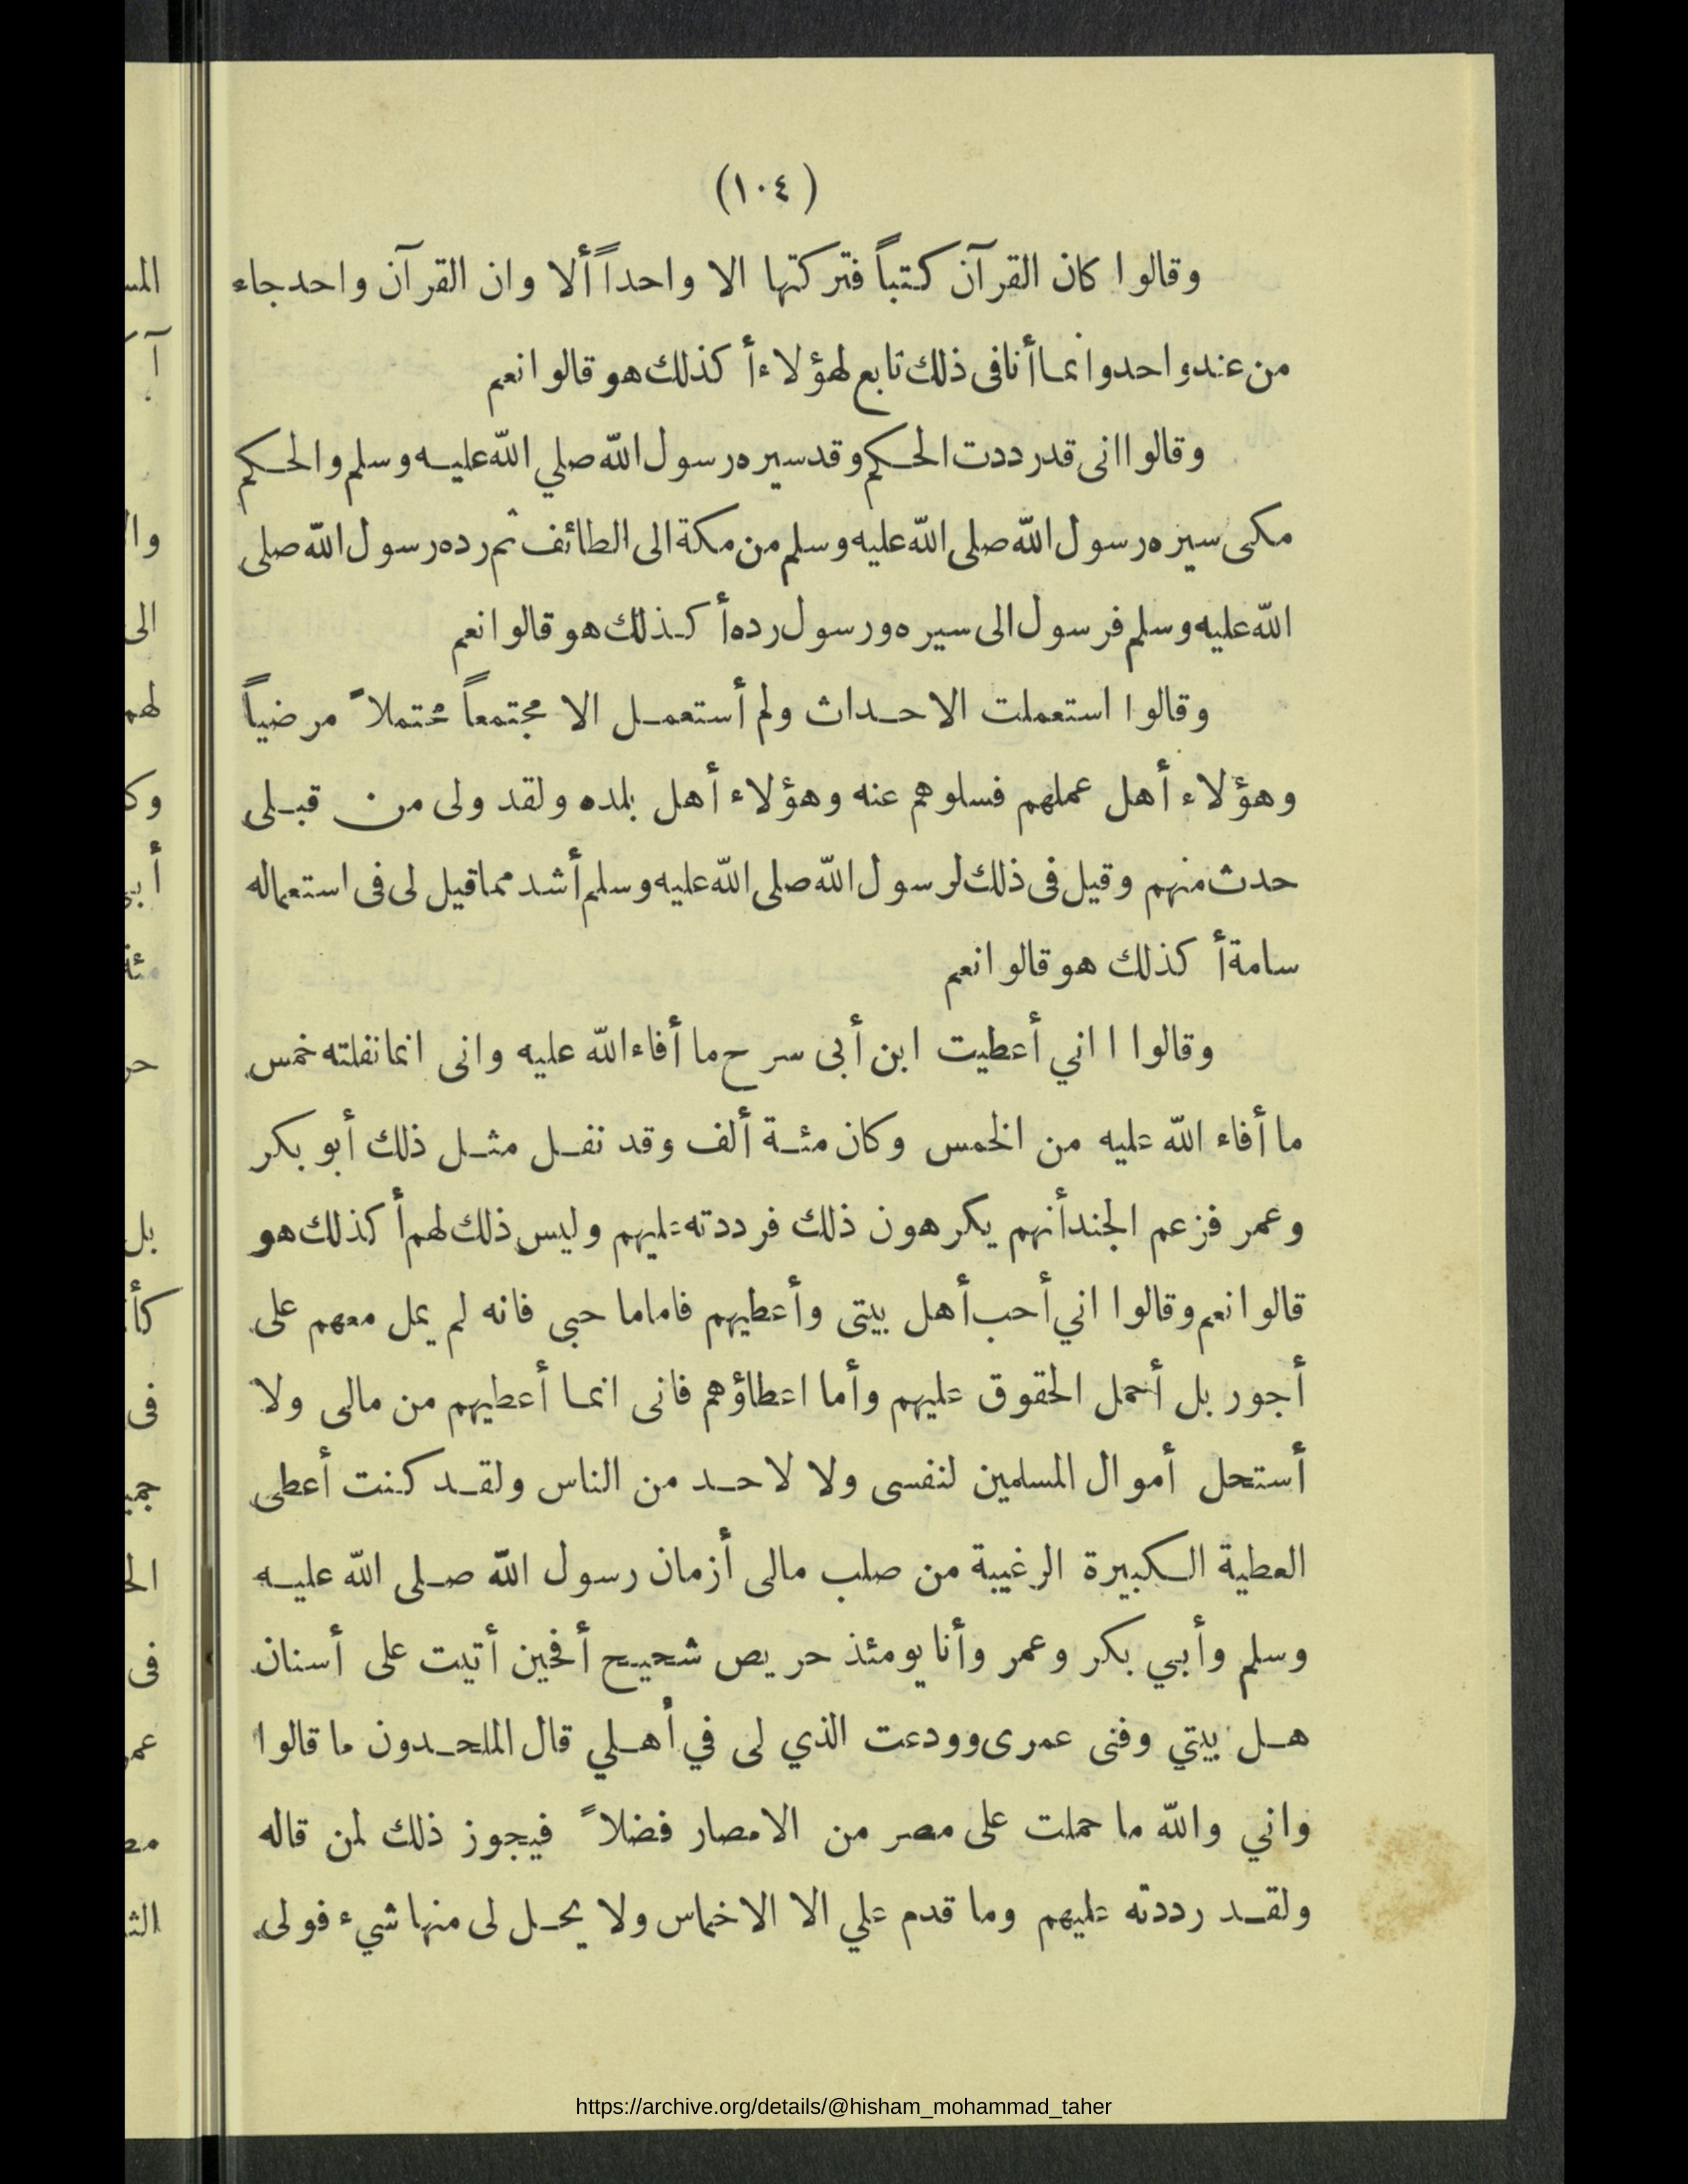 (١٠٤)
وقالوا كان القرآن كتباً فتركتها الا واحداً ألا وان القرآن واحد جاء
من عند واحد وانما أنا فى ذلك تابع لهؤلاء أ كذلك هو قالوا نعم
وقالوا انى قد رددت الحكم وقد سيره رسول الله صلي الله عليه وسلم والحكم
مكى سيره رسول الله صلى الله عليه وسلم من مكة الى الطائف ثم رده رسول الله صلى
الله عليه وسلم فرسول الى سيره ورسول رده أ كذلك هو قالوا نعم
وقالوا استعملت الاحداث ولم أستعمل الا مجتمعاً محتملاً مرضياً
وهؤلاء أهل عملهم فسلوهم عنه وهؤلاء أهل بلده ولقد ولى من قبلى
حدث منهم وقيل فى ذلك لرسول الله صلى الله عليه وسلم أشد مما قيل لى فى استعماله
سامة أ كذلك هو قالوا نعم
وقالوا ا اني أعطيت ابن أبى سرح ما أفاء الله عليه وانى انما نفلته خمس
ما أفاء الله عليه من الخمس وكان مئة ألف وقد نفل مثل ذلك أبو بكر
وعمر فزعم الجند أنهم يكرهون ذلك فرددته عليهم وليس ذلك لهم أ كذلك هو
قالوا نعم وقالوا اني أحب أهل بيتى وأعطيهم فاماما حبى فانه لم يمل معهم على
أجور بل أحمل الحقوق عليهم وأما اعطاؤهم فانى انما أعطيهم من مالى ولا
أستحل أموال المسلمين لنفسى ولا لاحد من الناس ولقد كنت أعطى
العطية الكبيرة الرغيبة من صلب مالى أزمان رسول الله صلى الله عليه
وسلم وأبي بكر وعمر وأنا يومئذ حريص شحيح أفحين أتيت على أسنان
هل بيتي وفنى عمرى وودعت الذي لى في أهلي قال الملحدون ما قالوا
واني والله ما حملت على مصر من الامصار فضلاً فيجوز ذلك لمن قاله
ولقد رددته عليهم وما قدم علي الا الاخماس ولا يحل لى منها شيء فولى
https://archive.org/details/@hisham_mohammad_taher